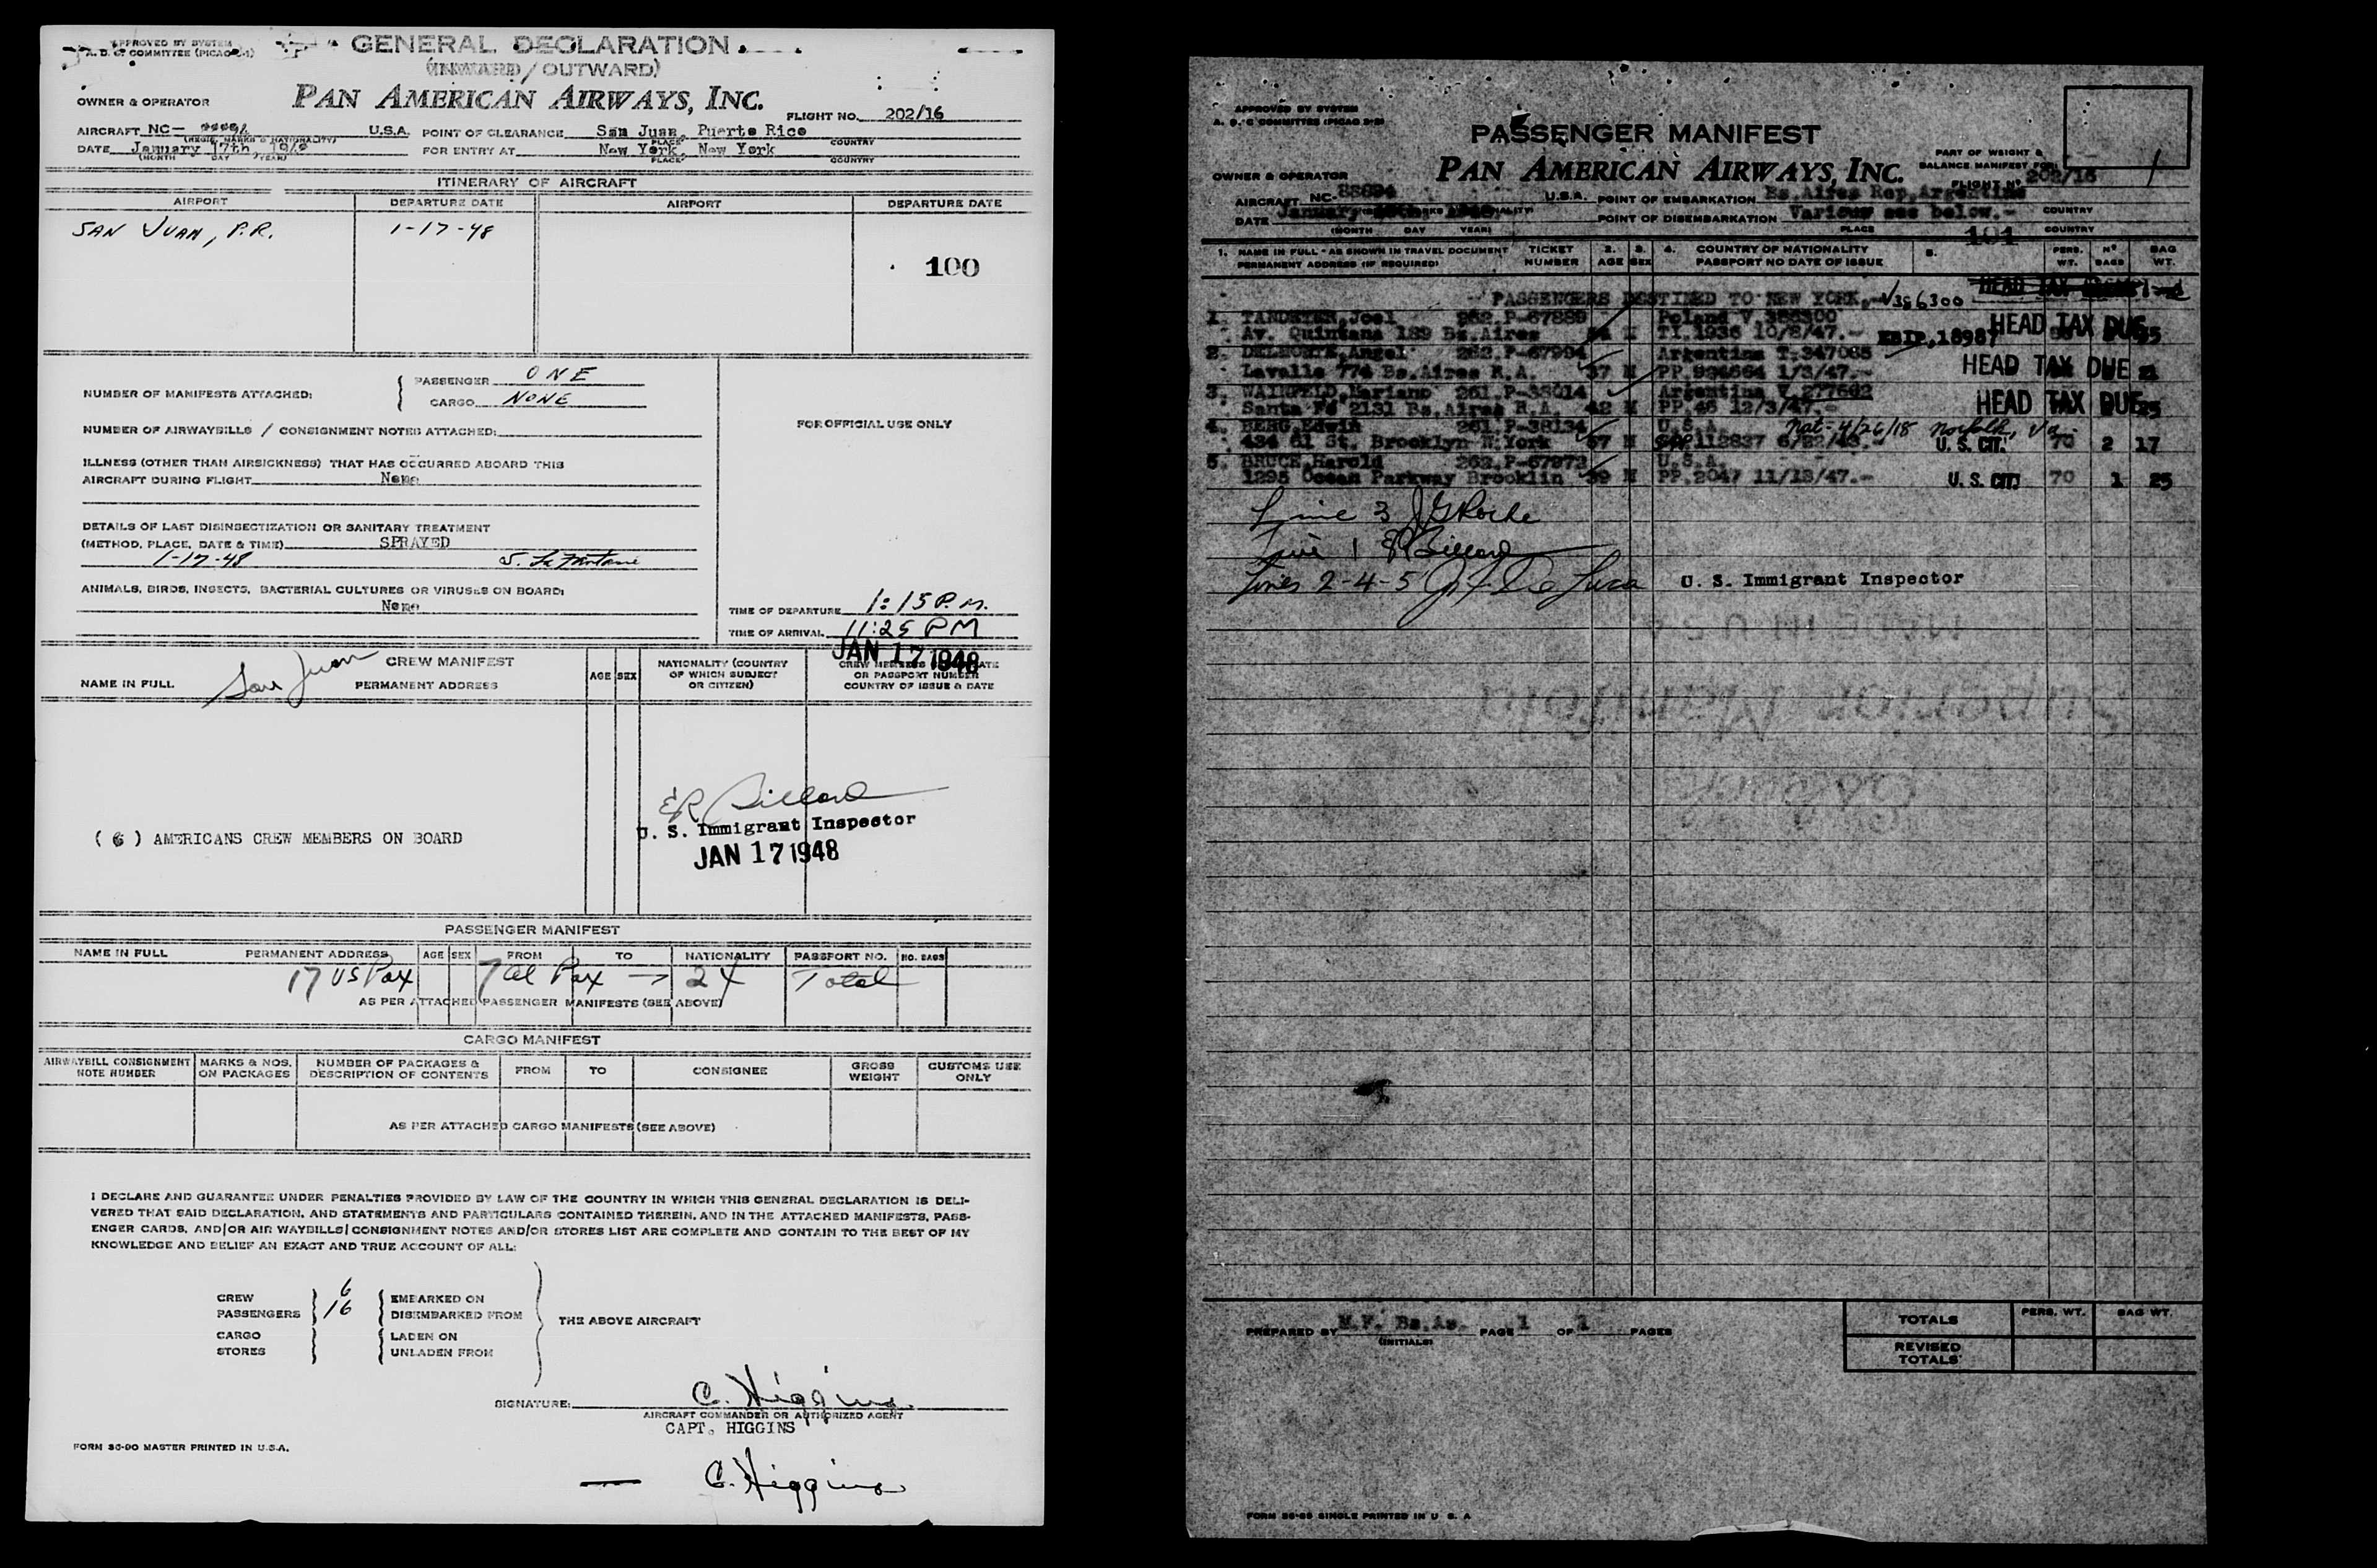 APPROVED BY SYSTEM
A. D. C. COMMITTEE (PICAO 2-1)
GENERAL DECLARATION
(INWARD / OUTWARD)
OWNER & OPERATOR
PAN AMERICAN AIRWAYS, INC.
FLIGHT NO. 202/16
AIRCRAFT NC- U.S.A. POINT OF CLEARANCE San Juan, Puerto Rico
(REGIS. MARKS & NATIONALITY) PLACE COUNTRY
DATE January 17th, FOR ENTRY AT New York, New York
(MONTH DAY YEAR) PLACE COUNTRY
ITINERARY OF AIRCRAFT
AIRPORT DEPARTURE DATE AIRPORT DEPARTURE DATE
SAN JUAN, P.R. 1-17-48
100
NUMBER OF MANIFESTS ATTACHED: PASSENGER ONE
CARGO NONE
FOR OFFICIAL USE ONLY
NUMBER OF AIRWAYBILLS / CONSIGNMENT NOTES ATTACHED:
ILLNESS (OTHER THAN AIRSICKNESS) THAT HAS OCCURRED ABOARD THIS
AIRCRAFT DURING FLIGHT None
DETAILS OF LAST DISINSECTIZATION OR SANITARY TREATMENT
(METHOD, PLACE, DATE & TIME) SPRAYED
1-17-48
ANIMALS, BIRDS, INSECTS, BACTERIAL CULTURES OR VIRUSES ON BOARD:
None
TIME OF DEPARTURE 1:15 P.M.
TIME OF ARRIVAL 11:25 PM
JAN 17 1948
San Juan
CREW MANIFEST
NAME IN FULL PERMANENT ADDRESS AGE SEX
NATIONALITY (COUNTRY
OF WHICH SUBJECT
OR CITIZEN)
OR PASSPORT NUMBER
COUNTRY OF ISSUE & DATE
E R Billard
U. S. Immigrant Inspector
( 6 ) AMERICANS CREW MEMBERS ON BOARD
JAN 17 1948
PASSENGER MANIFEST
NAME IN FULL PERMANENT ADDRESS AGE SEX FROM TO NATIONALITY PASSPORT NO. NO. BAGS
17 US Pax 7 Al Pax → 24 Total
AS PER ATTACHED PASSENGER MANIFESTS (SEE ABOVE)
CARGO MANIFEST
AIRWAYBILL CONSIGNMENT NOTE NUMBER
MARKS & NOS. ON PACKAGES
NUMBER OF PACKAGES & DESCRIPTION OF CONTENTS
FROM TO CONSIGNEE
GROSS WEIGHT
CUSTOMS USE ONLY
AS PER ATTACHED CARGO MANIFESTS (SEE ABOVE)
I DECLARE AND GUARANTEE UNDER PENALTIES PROVIDED BY LAW OF THE COUNTRY IN WHICH THIS GENERAL DECLARATION IS DELI-
VERED THAT SAID DECLARATION, AND STATEMENTS AND PARTICULARS CONTAINED THEREIN, AND IN THE ATTACHED MANIFESTS, PASS-
ENGER CARDS, AND/OR AIR WAYBILLS/CONSIGNMENT NOTES AND/OR STORES LIST ARE COMPLETE AND CONTAIN TO THE BEST OF MY
KNOWLEDGE AND BELIEF AN EXACT AND TRUE ACCOUNT OF ALL:
CREW 6 EMBARKED ON
PASSENGERS 16 DISEMBARKED FROM
THE ABOVE AIRCRAFT
CARGO LADEN ON
STORES UNLADEN FROM
SIGNATURE: C. Higgins
AIRCRAFT COMMANDER OR AUTHORIZED AGENT
CAPT. HIGGINS
FORM 36-90 MASTER PRINTED IN U.S.A.
C. Higgins
APPROVED BY SYSTEM
A. D. C COMMITTEE (PICAO 2-2)
PASSENGER MANIFEST
PART OF WEIGHT &
BALANCE MANIFEST FOR
OWNER & OPERATOR
PAN AMERICAN AIRWAYS, INC.
FLIGHT Nº 202/16
1
AIRCRAFT NC-88894 U.S.A. POINT OF EMBARKATION Bs.Aires Rep.Argentina
COUNTRY
DATE January POINT OF DISEMBARKATION Various see below.-
(MONTH DAY YEAR) PLACE COUNTRY
101
1. NAME IN FULL - AS SHOWN IN TRAVEL DOCUMENT TICKET 2. 3. 4. COUNTRY OF NATIONALITY 5. PERS. Nº BAG
PERMANENT ADDRESS (IF REQUIRED) NUMBER AGE SEX PASSPORT NO DATE OF ISSUE WT. BAGS WT.
PASSENGERS DESTINED TO NEW YORK.- V386300
1. Joel 262.P-67889 Poland V.
Av. Quintana 189 Bs.Aires M TI.1936 10/8/47.- HEAD TAX DUE
2. DELMONTE,Angel 262.P-67994 Argentina T.347085
Lavalle 774 Bs.Aires R.A. 37 M PP.994664 1/3/47.- HEAD TAX DUE
3. WAINFELD,Mariano 261.P-38014 Argentina V.277662
Santa Fe 2131 Bs.Aires R.A. 42 M PP.46 12/3/47.- HEAD TAX DUE 25
4. BERG,Edwin 261.P-38134 U.S.A. Nat-4/26/18 Norfolk, Va.
434 61 St. Brooklyn N.York 57 M 112837 U. S. CIT. 70 2 17
5. BRUCE,Harold 262.P-67972 U.S.A.
1295 Ocean Parkway Brooklin 39 M PP.2047 11/13/47.- U. S. CIT. 70 1 25
Line 3 J G Roche
Line 1 E R Billard
Lines 2-4-5 J. F. De Luca U. S. Immigrant Inspector
PREPARED BY M.F. Bs.As. PAGE 1 OF 1 PAGES
(INITIALS)
TOTALS PERS. WT. BAG WT.
REVISED
TOTALS
FORM 36-95 SINGLE PRINTED IN U. S. A